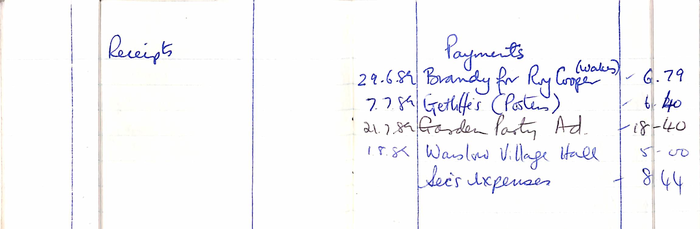 Receipts
Payments
29.6.89 Brandy for Roy Cooper (Wales) - 6.79
7.7.89 Getliffe's (Posters) - 6.40
21.7.89 Garden Party Ad. - 18-40
1.8.89 Warslow Village Hall 5-00
Sec's expenses - 8 44